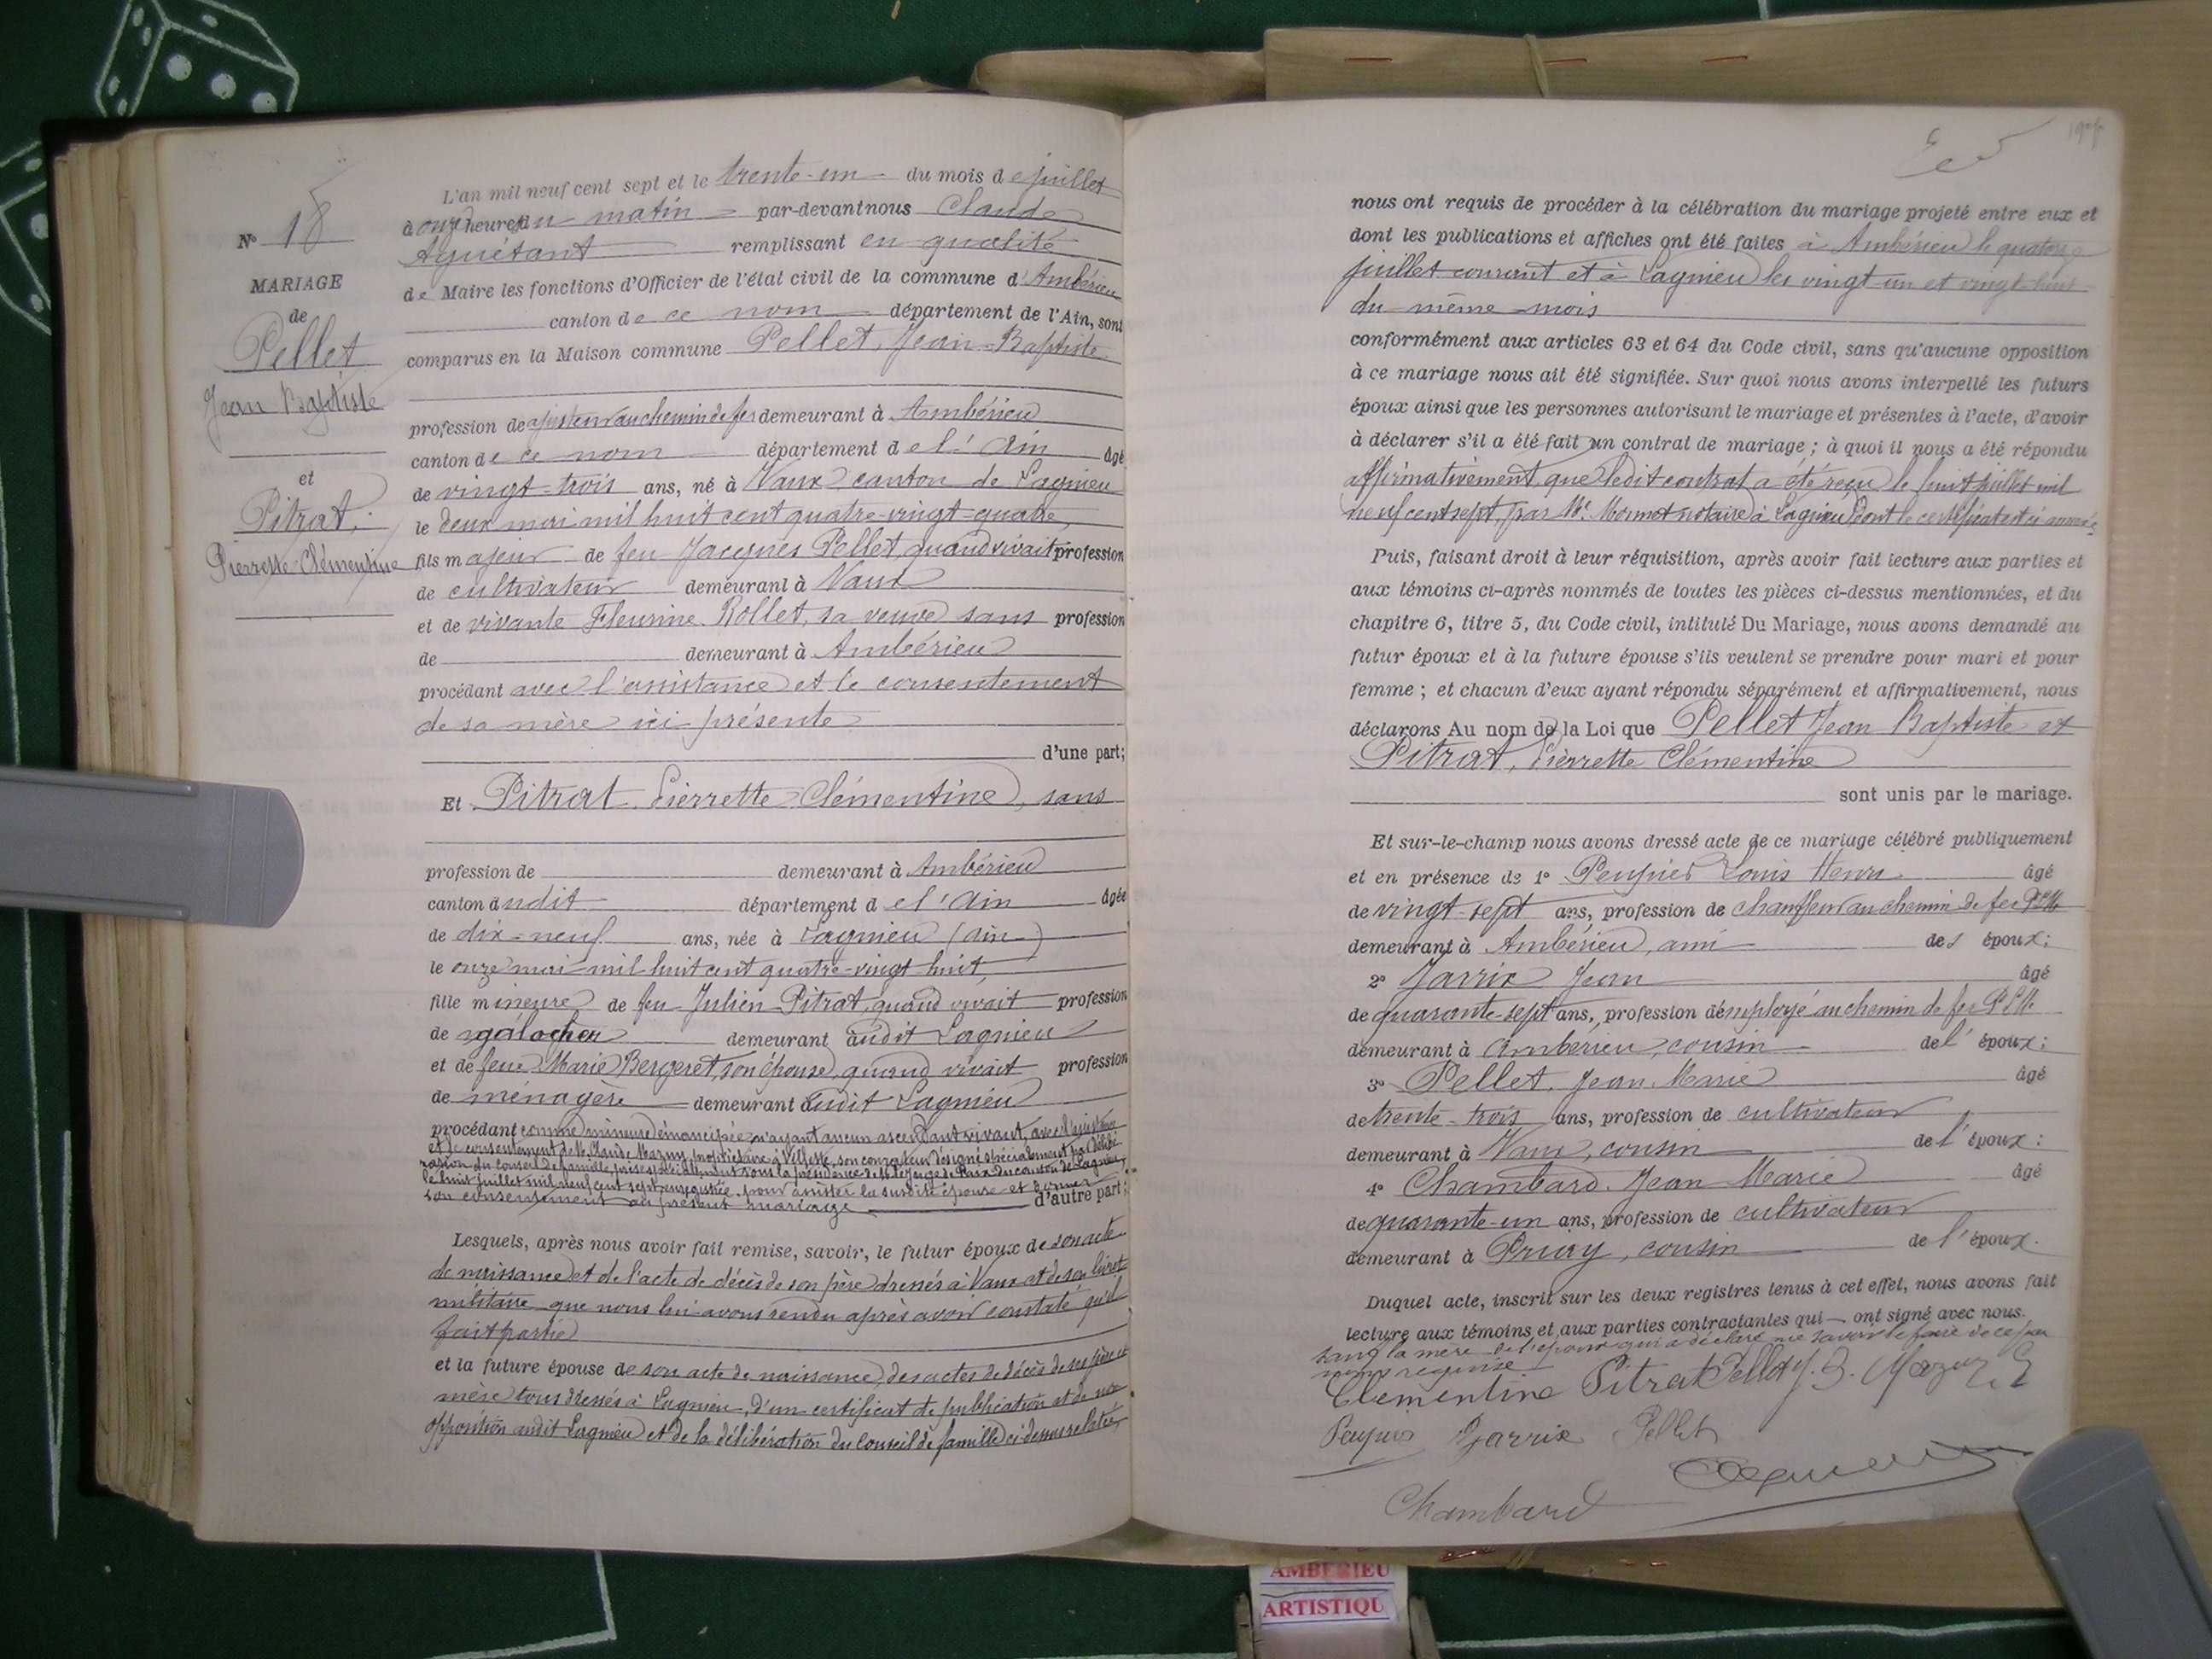 N° 18
MARIAGE
de
Pellet
Jean Baptiste
et
Pitrat,
Pierrette Clémentine
L'an mil neuf cent sept et le trente-un du mois de juillet
à onze heures du matin par-devant nous Claude
Aguétant remplissant en qualité
de Maire les fonctions d'Officier de l'état civil de la commune d'Ambérieu
canton de ce nom département de l'Ain, sont
comparus en la Maison commune Pellet, Jean-Baptiste
profession de ajusteur au chemin de fer demeurant à Ambérieu
canton de ce nom département de l'Ain âgé
de vingt-trois ans, né à Vaux canton de Lagnieu
le deux mai mil huit cent quatre-vingt-quatre,
fils majeur de feu Jacques Pellet, quand vivait profession
de cultivateur demeurant à Vaux
et de vivante Fleurine Rollet, sa veuve sans profession
de demeurant à Ambérieu
procédant avec l'assistance et le consentement
de sa mère ici présente
d'une part;
Et Pitrat Pierrette Clémentine, sans
profession de demeurant à Ambérieu
canton dudit département de l'Ain âgée
de dix-neuf ans, née à Lagnieu (Ain)
le onze mai mil huit cent quatre-vingt huit,
fille mineure de feu Julien Pitrat, quand vivait profession
de galocher demeurant audit Lagnieu
et de feue Marie Bergeret, son épouse, quand vivait profession
de ménagère demeurant audit Lagnieu
procédant comme mineure émancipée n'ayant aucun ascendant vivant, avec l'assistance
et le consentement de M. Claude propriétaire à son curateur désigné spécialement par délibé
ration du conseil de famille, prise sous la présidence de M. le juge de Paix du canton de Lagnieu,
le huit juillet mil neuf cent sept, enregistrée, pour assister la susdite épouse et donner
son consentement au présent mariage d'autre part;
Lesquels, après nous avoir fait remise, savoir, le futur époux de son acte
de naissance et de l'acte de décès de son père dressés à Vaux et de son livret
militaire que nous lui avons rendu après avoir constaté qu'il
fait partie
et la future épouse de son acte de naissance, des actes de décès de ses père et
mère tous dressés à Lagnieu, d'un certificat de publication et de non
opposition audit Lagnieu et de la délibération du conseil de famille ci-dessus relatée,
nous ont requis de procéder à la célébration du mariage projeté entre eux et
dont les publications et affiches ont été faites à Ambérieu le quatorze
juillet courant et à Lagnieu les vingt-un et vingt-huit
du même mois
conformément aux articles 63 et 64 du Code civil, sans qu'aucune opposition
à ce mariage nous ait été signifiée. Sur quoi nous avons interpellé les futurs
époux ainsi que les personnes autorisant le mariage et présentes à l'acte, d'avoir
à déclarer s'il a été fait un contrat de mariage ; à quoi il nous a été répondu
affirmativement, que ledit contrat a été reçu le huit juillet mil
neuf cent sept, par Me Mermet notaire à Lagnieu dont le certificat est ci annexé
Puis, faisant droit à leur réquisition, après avoir fait lecture aux parties et
aux témoins ci-après nommés de toutes les pièces ci-dessus mentionnées, et du
chapitre 6, titre 5, du Code civil, intitulé Du Mariage, nous avons demandé au
futur époux et à la future épouse s'ils veulent se prendre pour mari et pour
femme ; et chacun d'eux ayant répondu séparément et affirmativement, nous
déclarons Au nom de la Loi que Pellet Jean Baptiste et
Pitrat, Pierrette Clémentine
sont unis par le mariage.
Et sur-le-champ nous avons dressé acte de ce mariage célébré publiquement
et en présence de 1° Peupier Louis Henri âgé
de vingt-sept ans, profession de chauffeur au chemin de fer PLM
demeurant à Ambérieu, ami des époux;
2° Jarrix Jean âgé
de quarante-sept ans, profession d'employé au chemin de fer PLM
demeurant à Ambérieu, cousin de l'époux;
3° Pellet, Jean Marie âgé
de trente-trois ans, profession de cultivateur
demeurant à Vaux, cousin de l'époux;
4° Chambard Jean Marie âgé
de quarante-un ans, profession de cultivateur
demeurant à Priay, cousin de l'époux.
Duquel acte, inscrit sur les deux registres tenus à cet effet, nous avons fait
lecture aux témoins et aux parties contractantes qui ont signé avec nous.
sauf la mère de l'époux qui a déclaré ne savoir le faire de ce par
nous requise
Clementine Pitrat Pellet J. B.
Peupier Jarrix Pellet
Chambard
AMBERIEU
ARTISTIQU